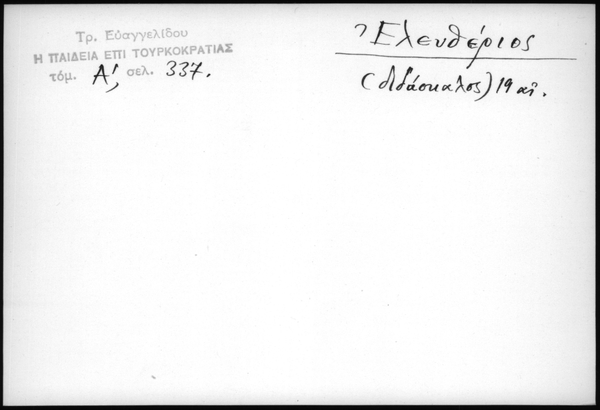 Τρ. Εὐαγγελίδου
Η ΠΑΙΔΕΙΑ ΕΠΙ ΤΟΥΡΚΟΚΡΑΤΙΑΣ
τόμ. Α!, σελ. 337.
Ἐλευθέριος
(διδάσκαλος) 19 αἰ.